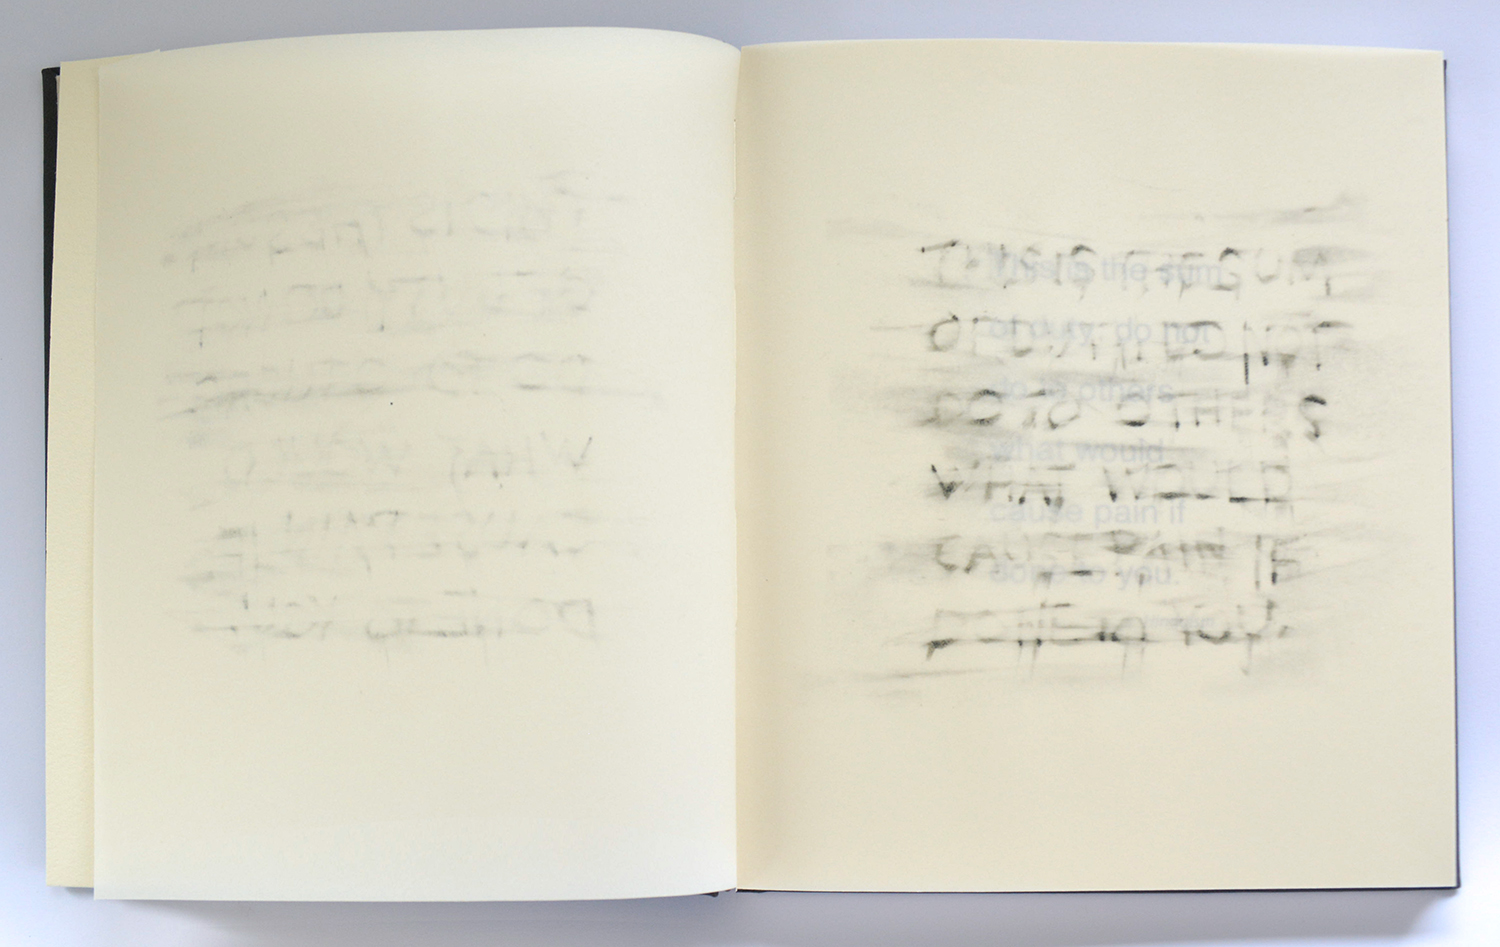 THIS IS THE SUM
OF DUTY: DO NOT
DO TO OTHERS
WHAT WOULD
CAUSE PAIN IF
DONE TO YOU.
This is the sum
of duty: do not
do to others
what would
cause pain if
done to you.